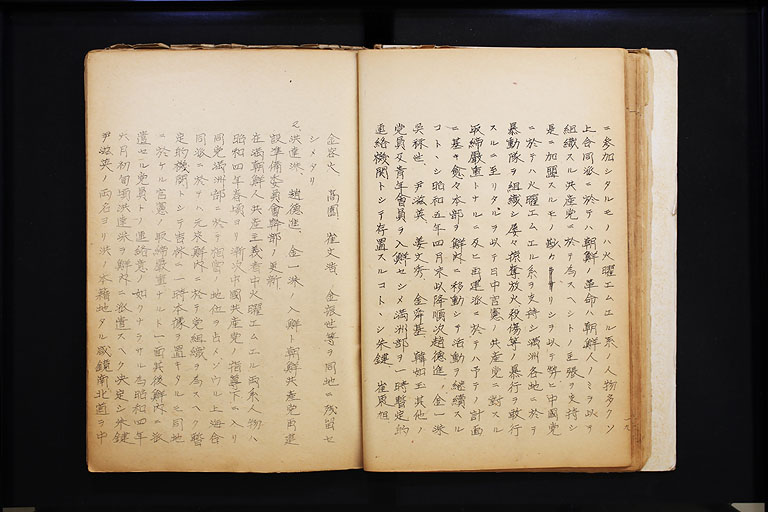 ニ参加シタルモノハ火曜エムエル系ノ人物多クソ
上合同派ニ於テハ朝鮮ノ革命ハ朝鮮人ノミヲ以テ
組織スル共産党ニ於テ為スヘシトノ主張ヲ支持シ
是ニ加盟スルモノ尠ケリシヲ以テ弊ヒ中國党
ニ於テハ火曜エムエル系ヲ支持シ満洲各地ニ於テ
暴動隊ヲ組織シ屡々掠奪放火殺傷等ノ暴行ヲ敢行
スルニ至リタルヲ以テ日中官憲ノ共産党ニ對スル
取締嚴重トナルニ及ヒ再建派ニ於テハ予テノ計画
ニ基キ愈々本部ヲ鮮内ニ移動シテ活動ヲ継續スル
コトヽシ昭和五年四月末以降順次趙德進、金一洙
吳林世、尹滋英、姜文秀、金舜基、韓如玉其他ノ
党員及青年會員ヲ入鮮セシメ満洲部ヲ一時暫定的
連絡機関トシテ存置スルコトヽシ朱鍵 崔東旭
金容火 高國 崔文浩、金振世等ヲ同地ニ残留セ
シメタリ
又、洪達洙、趙德進、金一洙ノ入鮮ト朝鮮共産党再建
設準備委員會幹部ノ更新
在満朝鮮人共産主義者中火曜エムエル両系人物ハ
昭和四年春頃ヨリ漸次中國共産党ノ指導下ニ入リ
同党満洲部ニ於テ相當ノ地位ヲ占メツヽアル上海合
同派ニ於テハ元來鮮内ニ於テ党組織ヲ為スヘク暫
定的機関トシテ吉林ニ一時本據ヲ置キタルモ同地
ニ於ケル官憲ノ取締嚴重ナルト一面其後鮮内ニ派
遣セル党員トノ連絡意ノ如クナラサル為昭和四年
六月初旬頃洪達洙ヲ鮮内ニ派遣スヘク決定シ朱鍵
尹滋英ノ両名ヨリ洪ノ本籍地タル咸鏡南北道ヲ中